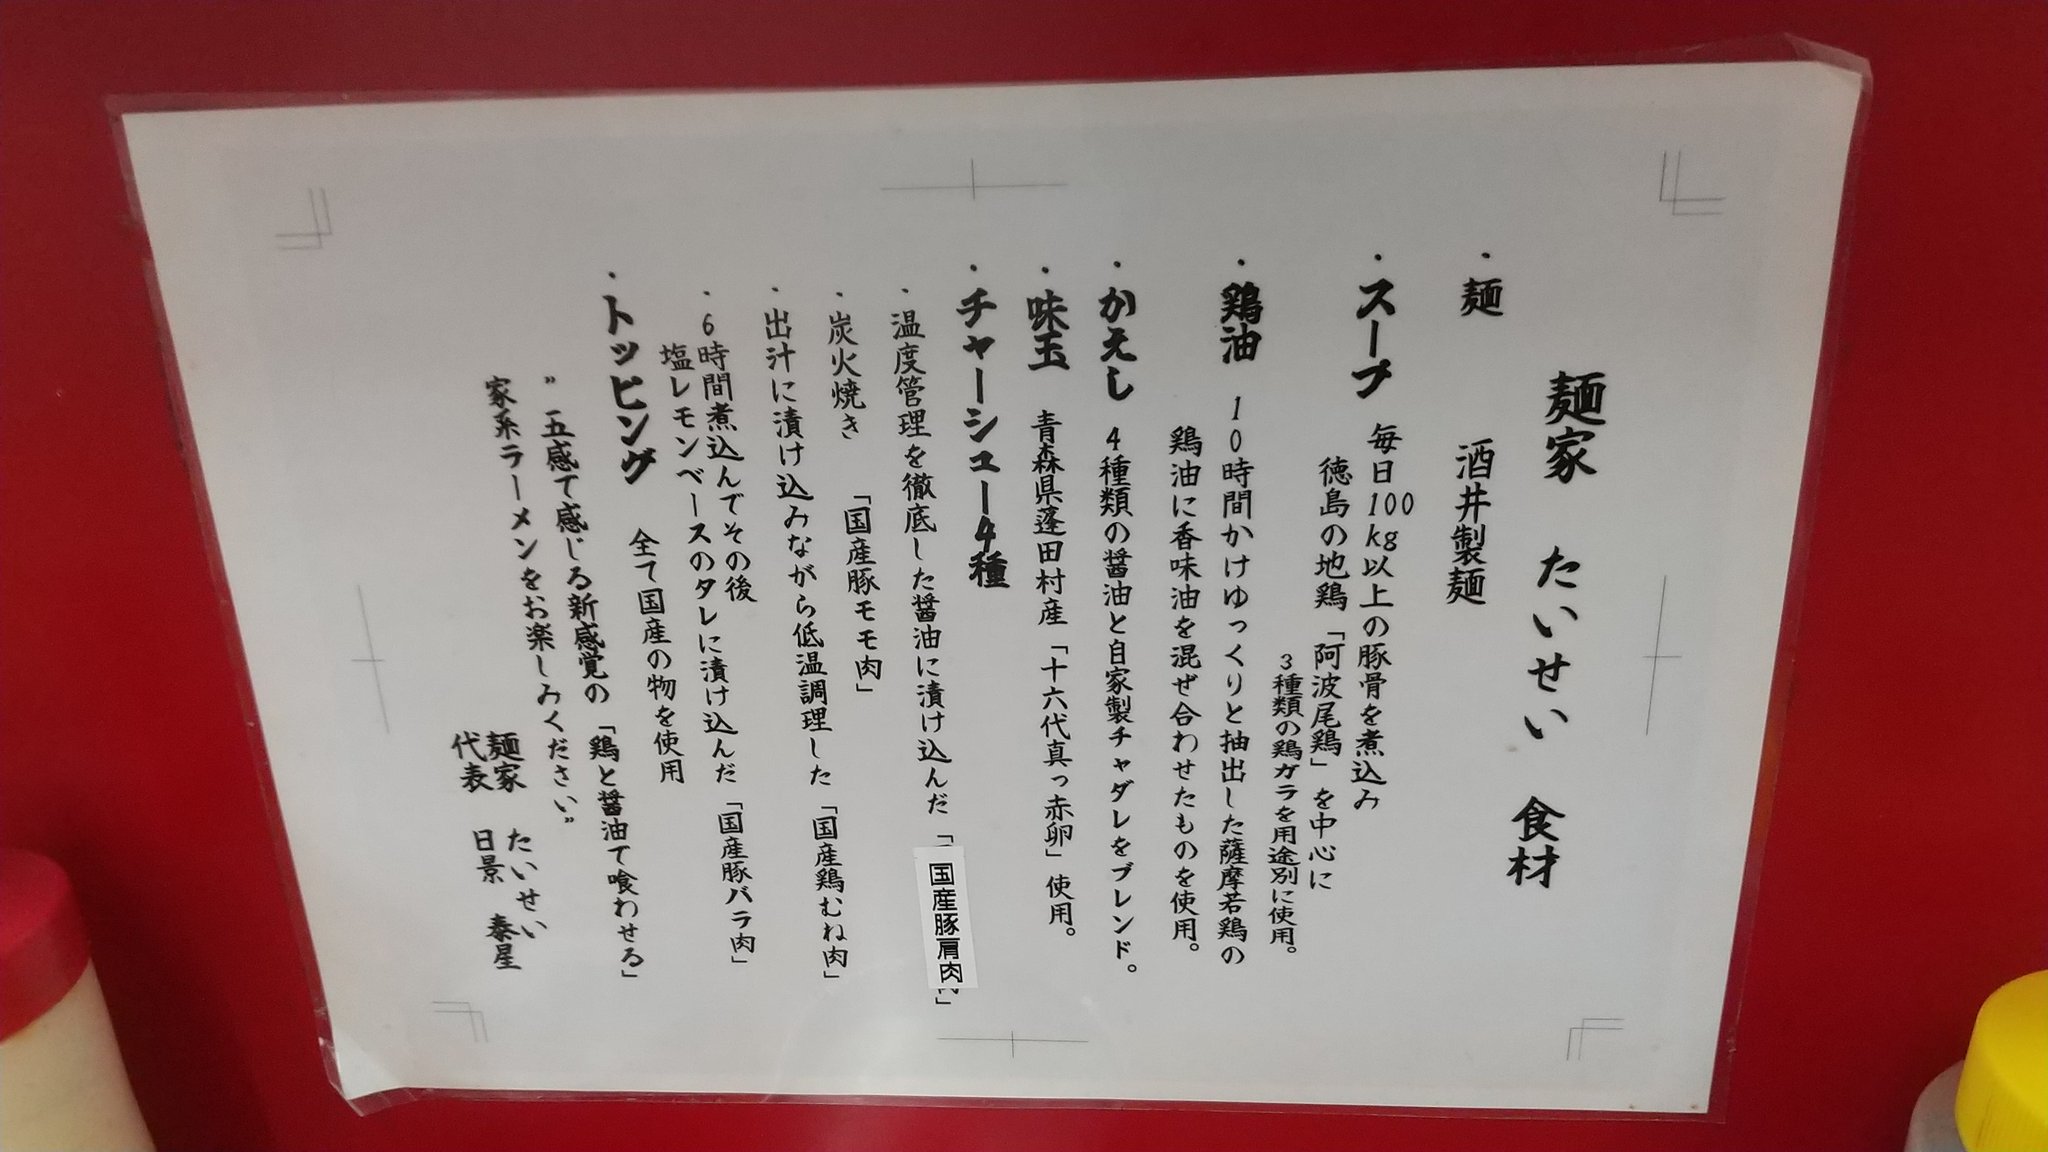 麺家 たいせい 食材
・麺 酒井製麺
・スープ 毎日100kg以上の豚骨を煮込み
徳島の地鶏「阿波尾鶏」を中心に
3種類の鶏ガラを用途別に使用。
・鶏油 10時間かけゆっくりと抽出した薩摩若鶏の
鶏油に香味油を混ぜ合わせたものを使用。
・かえし 4種類の醤油と自家製チャダレをブレンド。
・味玉 青森県蓬田村産「十六代真っ赤卵」使用。
・チャーシュー4種
・温度管理を徹底した醤油に漬け込んだ「国産豚肩肉」
・炭火焼き 「国産豚モモ肉」
・出汁に漬け込みながら低温調理した「国産鶏むね肉」
・6時間煮込んでその後
塩レモンベースのタレに漬け込んだ「国産豚バラ肉」
・トッピング 全て国産の物を使用
”五感で感じる新感覚の「鶏と醤油で喰わせる」
家系ラーメンをお楽しみください”
麺家 たいせい
代表 日景 泰星